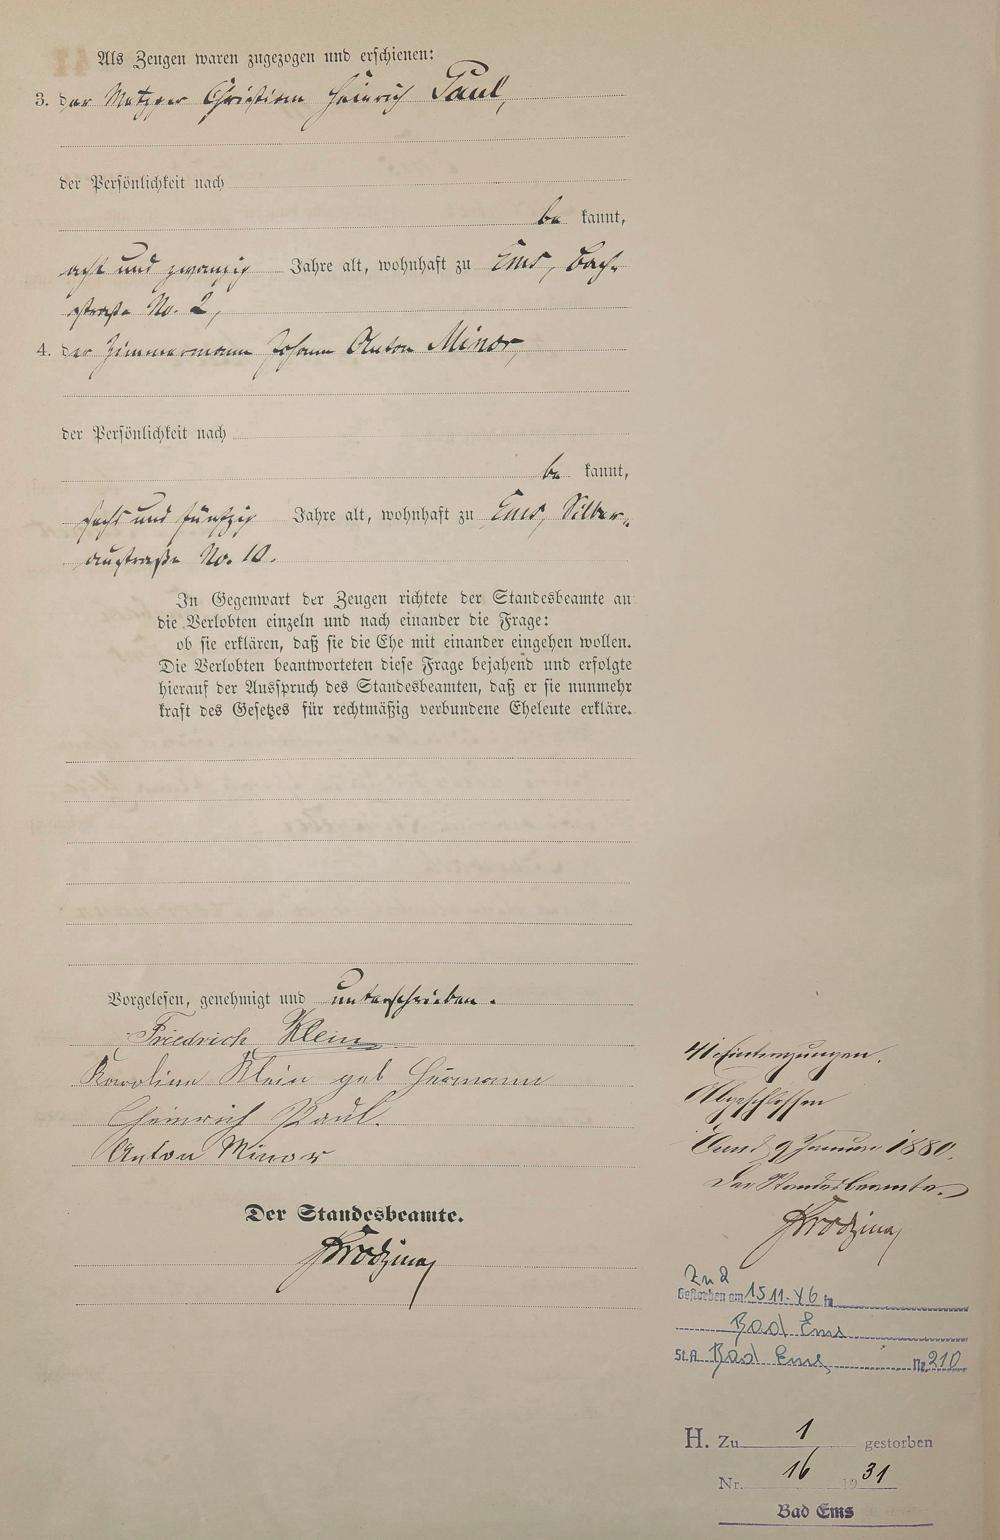 Als Zeugen waren zugezogen und erschienen:
3. der Metzger Christian Heinrich Paul,
der Persönlichkeit nach
be kannt,
acht und zwanzig Jahre alt, wohnhaft zu Ems, Bach-
straße No. 2,
4. der Zimmermann Johann Anton Minor,
der Persönlichkeit nach
be kannt,
sechs und fünfzig Jahre alt, wohnhaft zu Ems, Silber-
austraße No. 10.
In Gegenwart der Zeugen richtete der Standesbeamte an
die Verlobten einzeln und nach einander die Frage:
ob sie erklären, daß sie die Ehe mit einander eingehen wollen.
Die Verlobten beantworteten diese Frage bejahend und erfolgte
hierauf der Ausspruch des Standesbeamten, daß er sie nunmehr
kraft des Gesetzes für rechtmäßig verbundene Eheleute erkläre.
Vorgelesen, genehmigt und unterschrieben.
Friedrich Klein
Karoline Klein geb Hermann
Heinrich Paul.
Anton Minor
Der Standesbeamte.
41 Eintragungen.
Abgeschlossen
Januar 1880.
Der Standesbeamte.
Zu 2
Gestorben am 15.11.46 in
Bad Ems
St.A. Bad Ems, Nr. 210
H. Zu 1 gestorben
Nr. 16 1931
Bad Ems